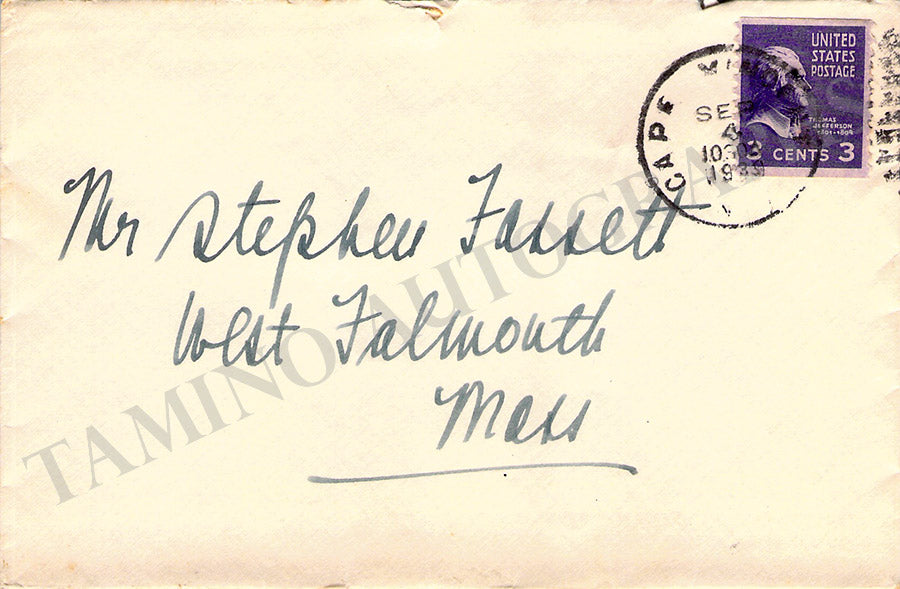 UNITED
STATES
POSTAGE
THOMAS
JEFFERSON
1801-1809
3 CENTS 3
CAPE
SEP
4
1939
Mr Stephen Fassett
West Falmouth
Mass
TAMINO AUTOGRAPHS